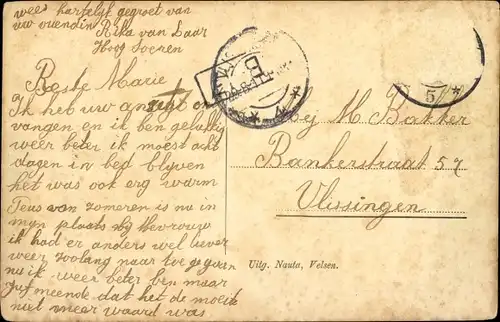 wees hartelijk gegroet van
uw vriendin Rika van Laar
Hoog Soeren
Beste Marie
Ik het uw anzigt on
vangen en ik ben gelukkig
weer beter ik moest acht
dagen in bed blijven
het was ook erg warm
Teus van zomeren is nu in
mijn plaats bij Mevrouw
ik had er anders wel liever
weer zoolang naar toe gegaan
nu ik weer beter ben maar
Juf meende dat het de moeite
niet meer waard was
bij M Bakker
Bankerstraat 57
Vlissingen
Uitg. Nauta, Velsen.
5